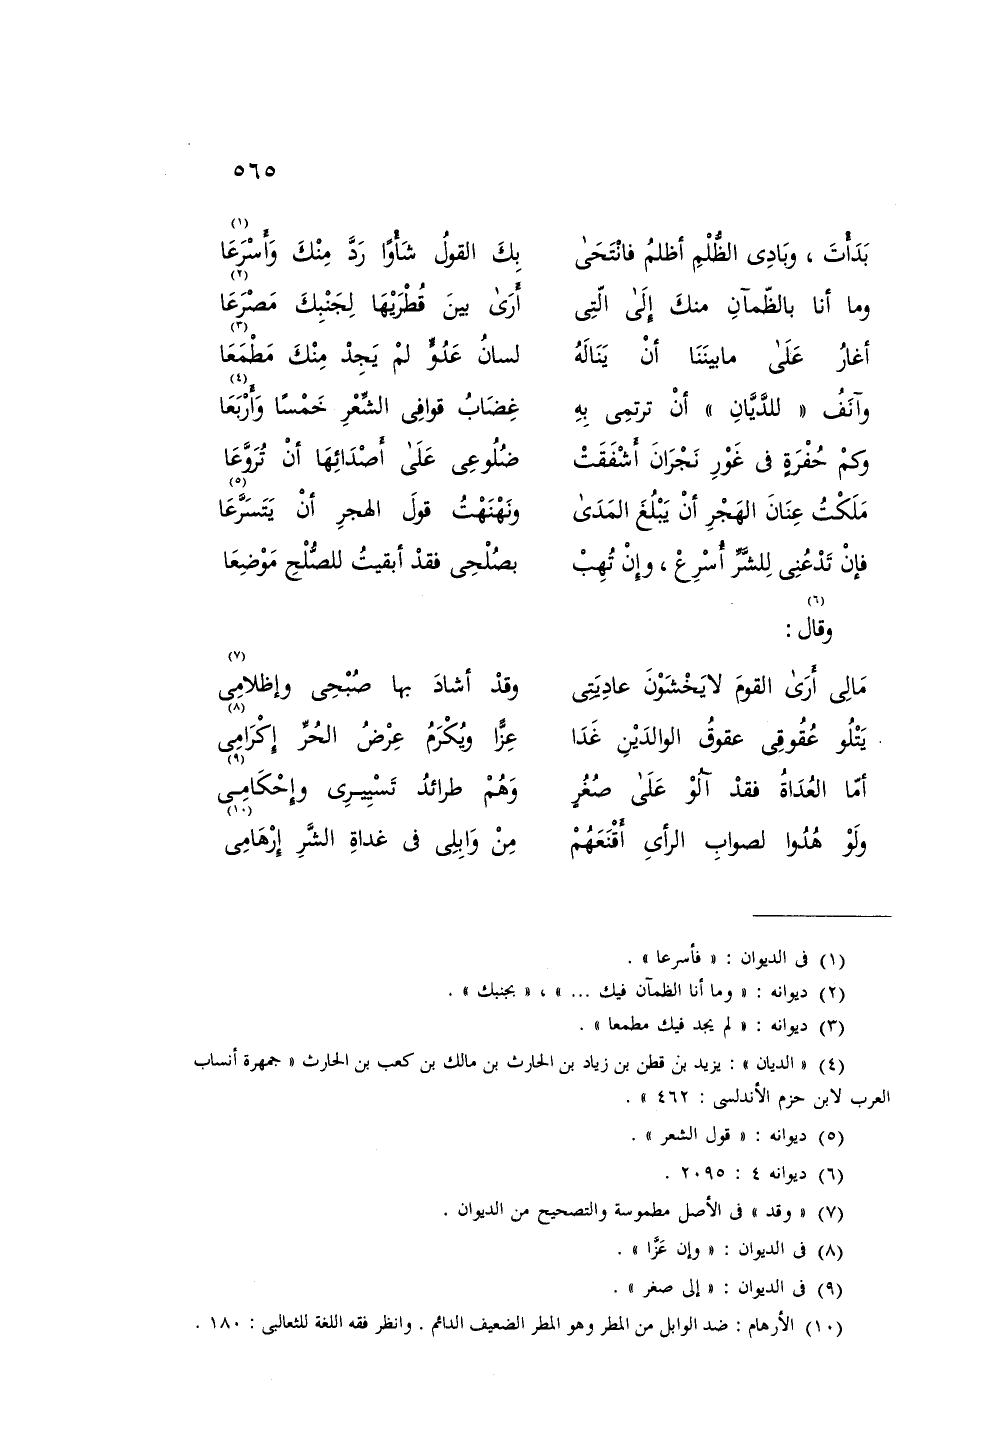 ٥٦٥
(١)
بَدَأْتَ ، وبَادِى الظُّلْمِ أظلمُ فانْتَحَىٰ بِكَ القولُ شَأْوًا رَدَّ مِنْكَ وَأَسْرَعَا
(٢)
وما أنا بالظّمآنِ منكَ إِلَىٰ الّتِى أَرَىٰ بينَ قُطْرَيْهَا لِجَنْبِكَ مَصْرَعَا
(٣)
أغارُ عَلَىٰ مابينَنَا أنْ يَنَالَهُ لسانُ عَدُوٍّ لمْ يَجِدْ مِنْكَ مَطْمَعَا
(٤)
وآنَفُ « للدَّيَّانِ » أنْ ترتمِى بِهِ غِضَابُ قوافِى الشِّعْرِ خَمْسًا وَأَرْبَعَا
وكمْ حُفْرَةٍ فى غَوْرِ نَجْرَانَ أَشْفَقَتْ ضُلُوعِى عَلَىٰ أَصْدَائِهَا أنْ تُرَوَّعَا
(٥)
مَلَكْتُ عِنَانَ الهَجْرِ أنْ يَبْلُغَ المَدَىٰ ونَهْنَهْتُ قولَ الهجرِ أنْ يَتَسَرَّعَا
فإنْ تَدْعُنِى لِلشَّرِّ أُسْرِعْ ، وإِنْ تُهِبْ بصُلْحِى فقدْ أبقيتُ للصُّلْحِ مَوْضِعَا
(٦)
وقال :
(٧)
مَالِى أَرَىٰ القومَ لايَخْشَوْنَ عادِيَتِى وقدْ أشادَ بها صُبْحِى وإظلامِى
(٨)
يَتْلُو عُقُوقِى عقوقُ الوالدَيْنِ غَدَا عِزًّا ويُكْرَمُ عِرْضُ الحُرِّ إِكْرَامِى
(٩)
أمّا العُدَاةُ فقدْ آلُوْ عَلَىٰ صُغُرٍ وَهُمْ طرائدُ تَسْيِيرِى وإِحْكَامِى
(١٠)
ولَوْ هُدُوا لصوابِ الرأىِ أَقْنَعَهُمْ مِنْ وَابِلِى فى غداةِ الشَّرِ إِرْهَامِى
(١) فى الديوان : « فأسرعا » .
(٢) ديوانه : « وما أنا الظمآن فيك ... » ، « بجنبك » .
(٣) ديوانه : « لم يجد فيك مطمعا » .
(٤) « الديان » : يزيد بن قطن بن زياد بن الحارث بن مالك بن كعب بن الحارث « جمهرة أنساب
العرب لابن حزم الأندلسى : ٤٦٢ » .
(٥) ديوانه : « قول الشعر » .
(٦) ديوانه ٤ : ٢٠٩٥ .
(٧) « وقد » فى الأصل مطموسة والتصحيح من الديوان .
(٨) فى الديوان : « وإن عَزَّا » .
(٩) فى الديوان : « إلى صغر » .
(١٠) الأرهام : ضد الوابل من المطر وهو المطر الضعيف الدائم . وانظر فقه اللغة للثعالبى : ١٨٠ .